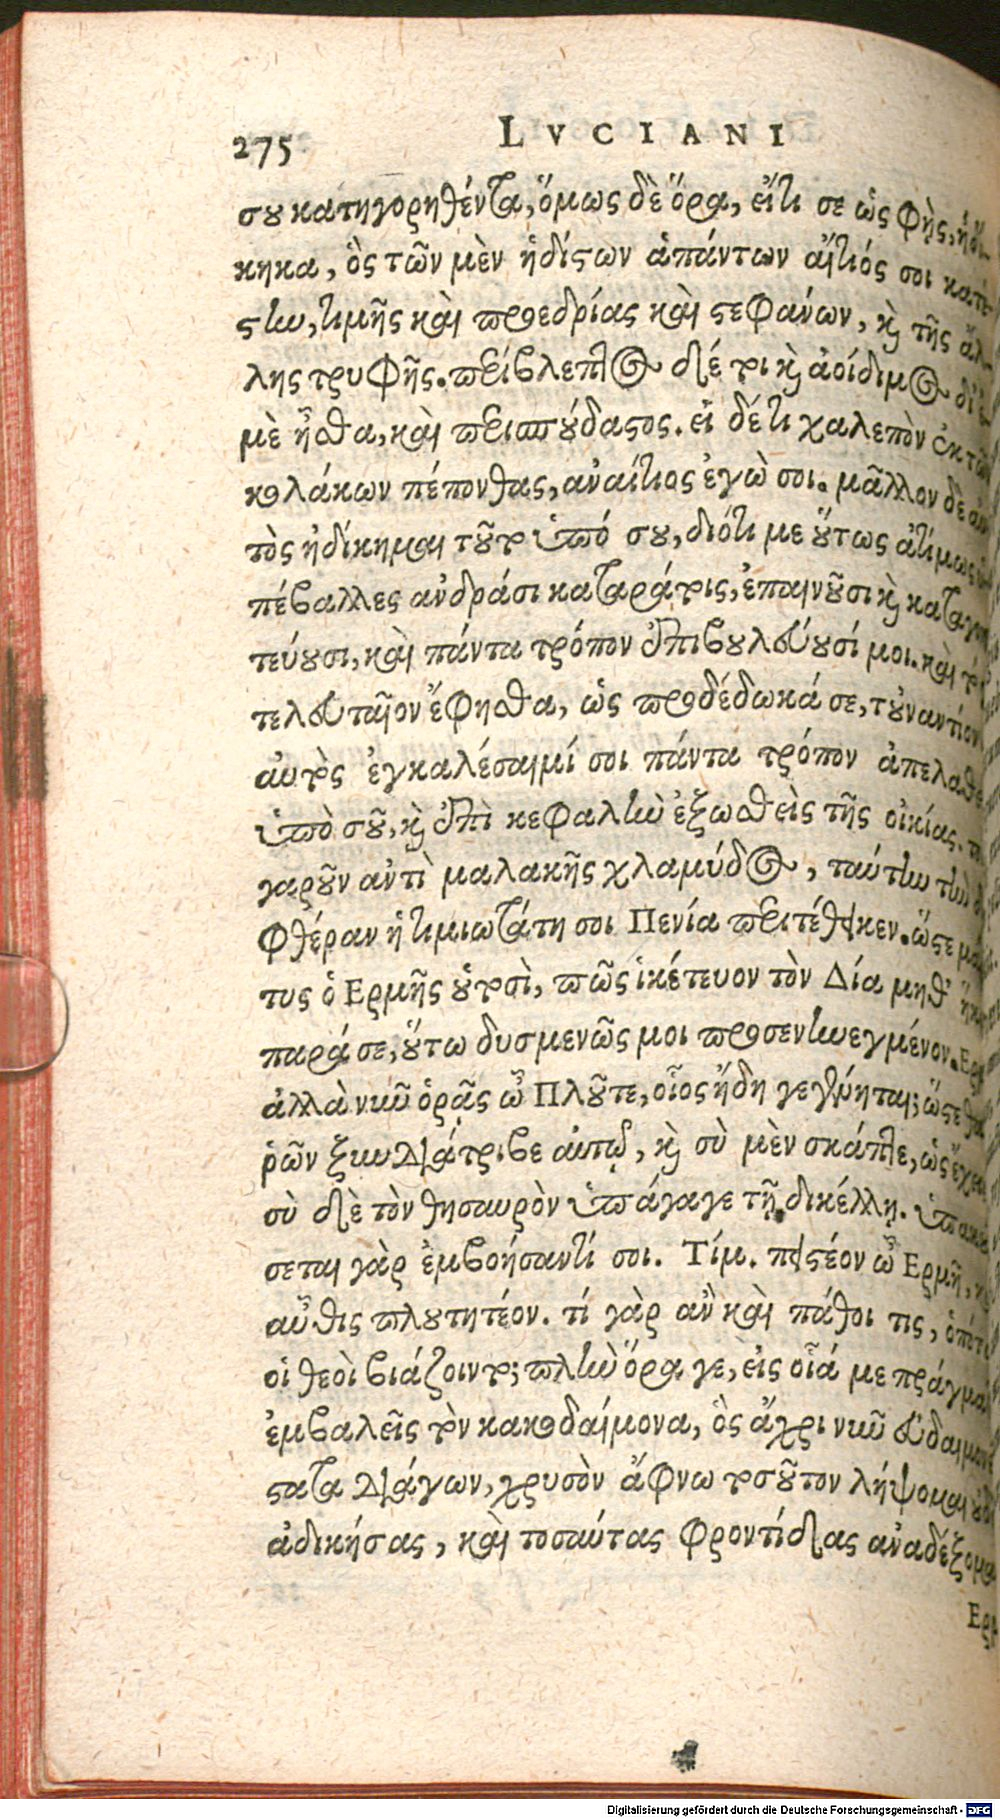 275 LVCIANI
σου κατηγορηθέντα, ὅμως δὲ ὅρα, εἴ τι σε ὡς φῂς, ἠδί-
κηκα, ὃς τῶν μὲν ἡδίστων ἁπάντων αἴτιός σοι κατέ-
στην, τιμῆς καὶ προεδρίας καὶ στεφάνων, καὶ τῆς ἄλ-
λης τρυφῆς. περίβλεπτος δέ τοι καὶ ἀοίδιμος δι' ἐ-
μὲ ἦσθα, καὶ περισπούδαστος. εἰ δέ τι χαλεπὸν ἐκ τῶν
κολάκων πέπονθας, ἀναίτιος ἐγώ σοι. μᾶλλον δὲ αὐ
τὸς ἠδίκημαι τοῦτο ὑπό σου, διότι με οὕτως ἀτίμως
πέβαλλες ἀνδράσι καταράτοις, ἐπαινοῦσι καὶ καταγοη
τεύουσι, καὶ πάντα τρόπον ἐπιβουλεύουσί μοι. καὶ τό
τελευταῖον ἔφησθα, ὡς προδέδωκά σε, τοὐναντίον
αὐτὸς ἐγκαλέσαιμί σοι πάντα τρόπον ἀπελαθεὶς
ὑπὸ σοῦ, καὶ ἐπὶ κεφαλὴν ἐξωσθεὶς τῆς οἰκίας.
γαροῦν ἀντὶ μαλακῆς χλαμύδος, ταύτην τὴν δι
φθέραν ἡ τιμιωτάτη σοι Πενία περιτέθεικεν. ὥστε μάρ
τυς ὁ Ερμῆς οὑτοσὶ, πῶς ἱκέτευον τὸν Δία μηθ' ἥκειν
παρά σε, οὕτω δυσμενῶς μοι προσενηνεγμένον. Ερμ
ἀλλὰ νῦν ὁρᾷς ὦ Πλοῦτε, οἷος ἤδη γεγένηται; ὥστε θαρ
ρῶν ξυνδιάτριβε αὐτῷ, καὶ σὺ μὲν σκάπτε, ὡς ἔχεις
σὺ δὲ τὸν θησαυρὸν ὑπάγαγε τῇ δικέλλῃ. ὑπακού
σεται γὰρ ἐμβοήσαντί σοι. Τίμ. πειστέον ὦ Ερμῆ,
αὖθις πλουτητέον. τί γὰρ ἂν καὶ πάθοι τις, ὁπότε
οἱ θεοὶ βιάζοιντο; πλὴν ὅρα γε, εἰς οἷά με πράγματ
ἐμβαλεῖς τὸν κακοδαίμονα, ὃς ἄχρι νῦν εὐδαιμονέ
στατα διάγων, χρυσὸν ἄφνω τοσοῦτον λήψομαι οὐδὲν
ἀδικήσας, καὶ τοσαύτας φροντίδας ἀναδέξομαι
Ερμ
Digitalisierung gefördert durch die Deutsche Forschungsgemeinschaft - DFG